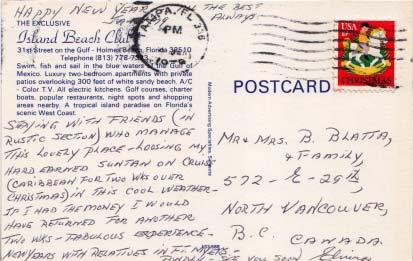 HAPPY NEW YEAR THE BEST
ALWAYS
THE EXCLUSIVE
Island Beach Club
31st Street on the Gulf - Holmes Beach, Florida 33510
Telephone (813) 778-
Swim, fish and sail in the blue waters of the Gulf of
Mexico. Luxury two-bedroom apartments with private
patios overlooking 300 feet of white sandy beach. A/C
- Color T.V. All electric kitchens. Golf courses, charter
boats, popular restaurants, night spots and shopping
areas nearby. A tropical island paradise on Florida's
scenic West Coast.
TAMPA, FL 336
PM
USA
CHRISTMAS
POSTCARD
STAYING WITH FRIENDS (IN
RUSTIC SECTION) WHO MANAGE
THIS LOVELY PLACE - LOOSING MY
HARD EARNED SUNTAN ON CRUISE
(CARIBBEAN FOR TWO WKS OVER
CHRISTMAS) IN THIS COOL WEATHER -
IF I HAD THE MONEY I WOULD
HAVE RETURNED FOR ANOTHER
TWO WKS - FABULOUS EXPERIENCE -
NEW YEARS WITH RELATIVES IN FT. MYERS -
SEE YOU SOON
MR & MRS. B. BLATTA,
& FAMILY,
572 - E - 29TH,
NORTH VANCOUVER,
B.C. CANADA